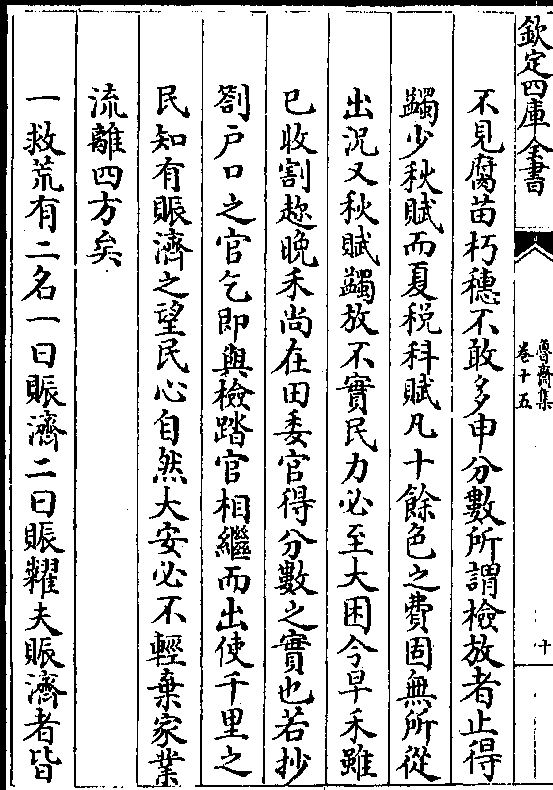 欽定四庫全書
魯齋集
卷十五
十
不見腐苗朽穗不敢多申分數所謂檢放者止得
蠲少秋賦而夏税科賦凡十餘色之費固無所從
出况又秋賦蠲放不實民力必至大困今早禾雖
已收割趂晚禾尚在田委官得分數之實也若抄
劄戸口之官乞即與檢踏官相繼而出使千里之
民知有賑濟之望民心自然大安必不輕棄家業
流離四方矣
一救荒有二名一曰賑濟二曰賑糶夫賑濟者皆